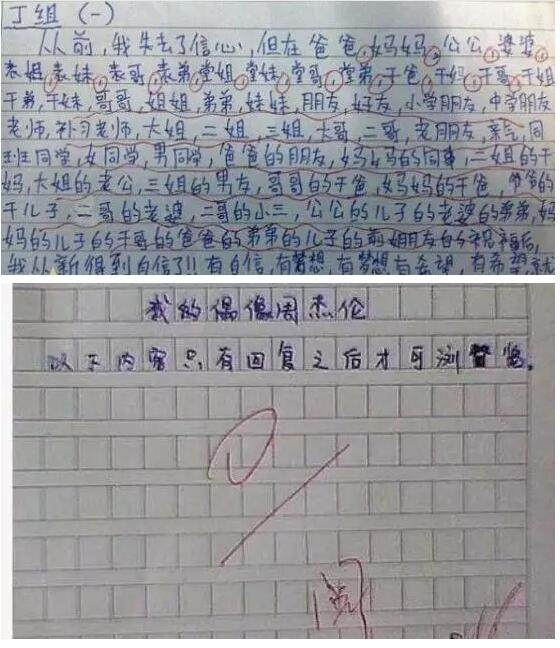 丁组 (一)
从前,我失去了信心,但在爸爸,妈妈,公公,婆婆,
表姐,表妹,表哥,表弟,堂姐,堂妹,堂哥,堂弟,干爸,干妈,干哥,干姐
干弟,干妹,哥哥,姐姐,弟弟,妹妹,朋友,好友,小学朋友,中学朋友
老师,补习老师,大姐,二姐,三姐,大哥,二哥,老朋友,亲气,同
班同学,女同学,男同学,爸爸的朋友,妈妈的同事,三姐的干
妈,大姐的老公,三姐的男友,哥哥的干爸,妈妈的干爸,爷爷的
干儿子,二哥的老婆,二哥的小三,公公的儿子的老婆的弟弟,妈
妈的儿子的干哥的爸爸的弟弟的儿子的前姐朋友的祝福后,
我从新得到自信了!!有自信,有梦想,有梦想有希望,有希望就
我的偶像周杰伦
以下内容只有回复之后才可浏览。
阅